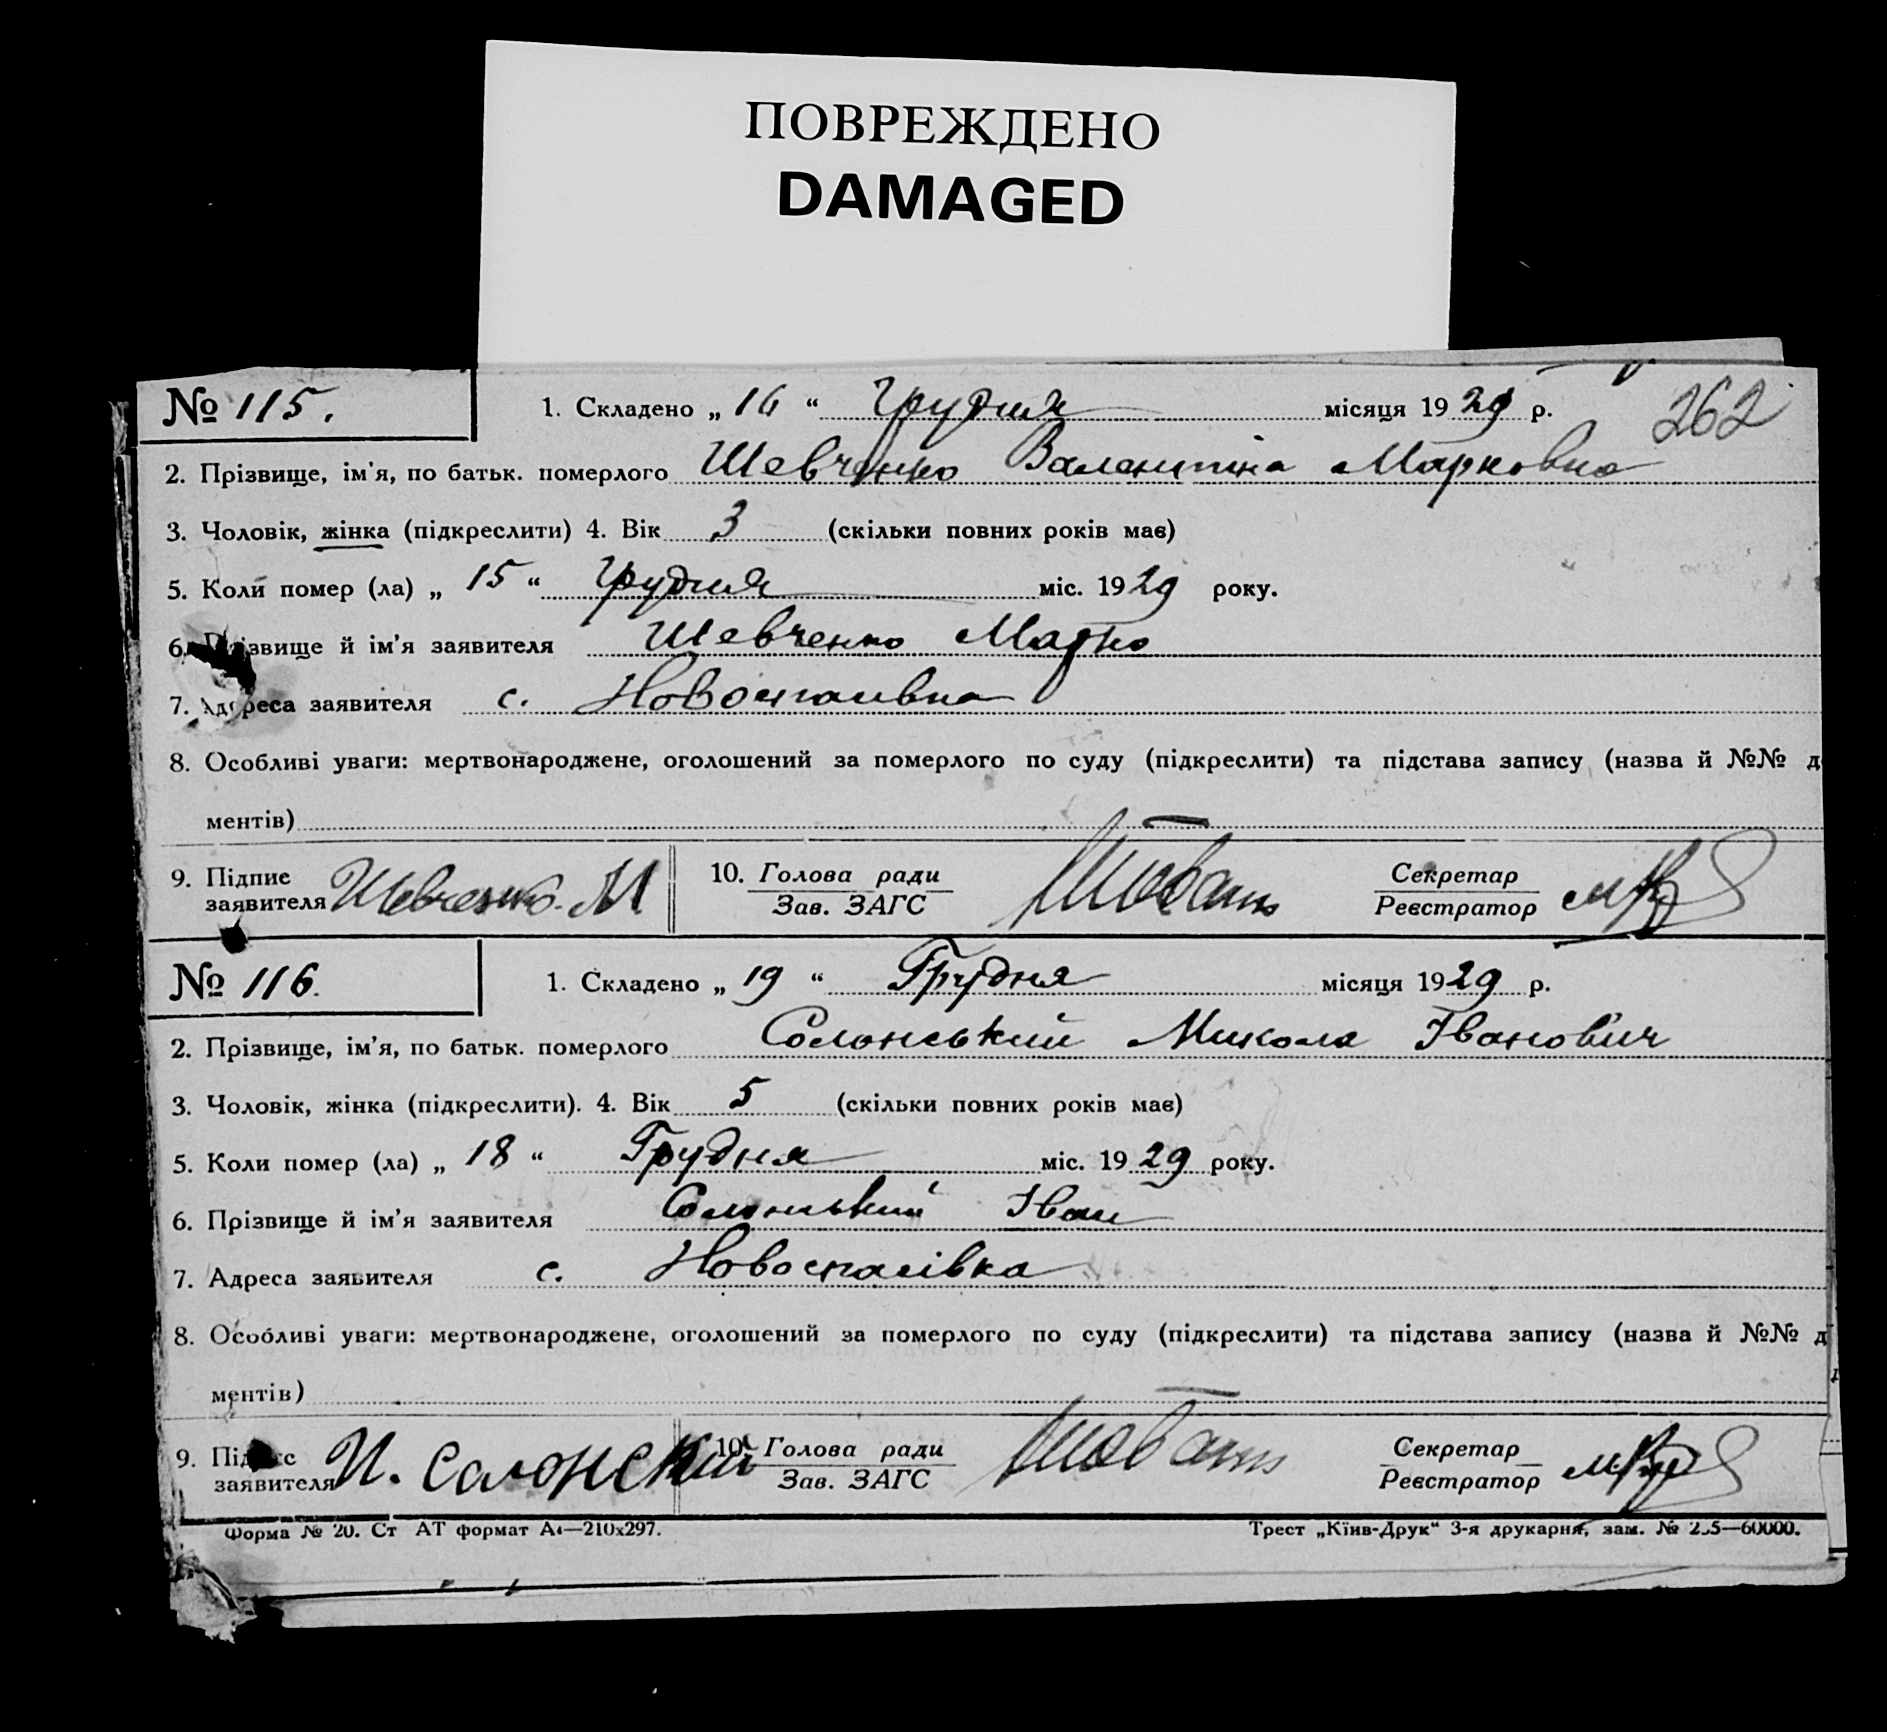 ПОВРЕЖДЕНО
DAMAGED
262
№ 115. 1. Складено „ 16 “ Грудня місяця 1929 р.
2. Прізвище, ім'я, по батьк. померлого Шевченко Валентіна Марковна
3. Чоловік, жінка (підкреслити) 4. Вік 3 (скільки повних років має)
5. Коли помер (ла) „ 15 “ Грудня міс. 1929 року.
6. Прізвище й ім'я заявителя Шевченко Марко
7. Адреса заявителя с. Новоспасівка
8. Особливі уваги: мертвонароджене, оголошений за померлого по суду (підкреслити) та підстава запису (назва й №№ д
ментів)
9. Підпис заявителя Шевченко. М 10. Голова ради Зав. ЗАГС Секретар Реєстратор
№ 116. 1. Складено „ 19 “ Грудня місяця 1929 р.
2. Прізвище, ім'я, по батьк. померлого Солонський Микола Іванович
3. Чоловік, жінка (підкреслити). 4. Вік 5 (скільки повних років має)
5. Коли помер (ла) „ 18 “ Грудня міс. 1929 року.
6. Прізвище й ім'я заявителя Солонський Іван
7. Адреса заявителя с. Новоспасівка
8. Особливі уваги: мертвонароджене, оголошений за померлого по суду (підкреслити) та підстава запису (назва й №№ д
ментів)
9. Підпис заявителя И. Солонский 10. Голова ради Зав. ЗАГС Секретар Реєстратор
Форма № 20. Ст АТ формат А4—210х297. Трест „Київ-Друк“ 3-я друкарня, зам. №